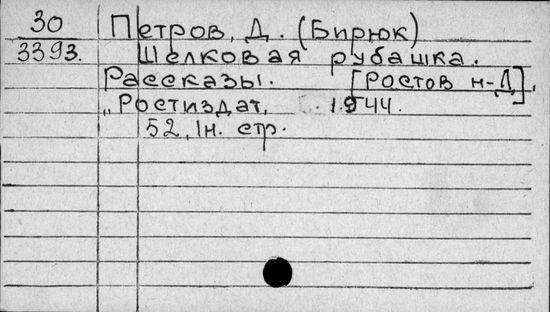 30 Петров, Д. (Бирюк)
3393. Шелковая рубашка.
Рассказы. [Ростов н-Д],
„Ростиздат, 1944.
52, 1н. стр.